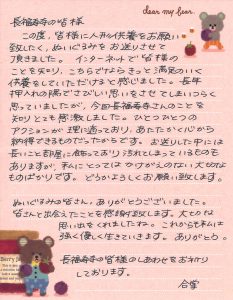 dear my bear.
長福寿寺の皆様
この度、皆様に人形供養をお願い
致したく、ぬいぐるみをお送りさせて
頂きました。インターネットで皆様の
ことを知り、こちらでならきっと満足のいく
供養をしていただけると感じました。長年
押入れの隅でさびしい思いをさせてしまいつらく
思っていましたが、今回長福寿寺さんのことを
知りとても感激しました。ひとつひとつの
アクションが理に適っており、あたたかく心から
納得できるものだったからです。お送りした中には
長いこと部屋に飾っておりうすよごれてしまっているものも
ありますが、私にとってはかけがえのない大切な
ものばかりです。どうかよろしくお願い致します。
ぬいぐるみの皆さん、ありがとうございました。
皆さんと出会えたことを感謝致します。大切な
思い出をくれましたね。これからも私は
強く優しく生きていきます。ありがとう。
長福寿寺の皆様のしあわせをお祈り
しております。
合掌
Berry